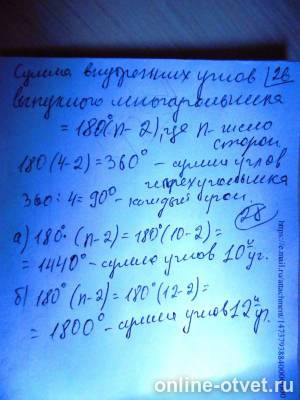 Сумма внутренних углов 26
выпуклого многоугольника
= 180°(n-2), где n-число
сторон
180(4-2)=360° - сумма углов
четырехугольника
360:4=90° - каждый угол.
28
а) 180°·(n-2)=180°(10-2)=
= 1440° - сумма углов 10й уг.
б) 180°(n-2)=180°(12-2)=
= 1800° - сумма углов 12й уг.
online-otvet.ru